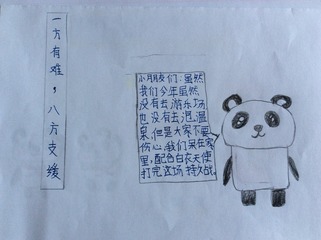 一方有难，八方支缓
小朋友们：虽然
我们今年虽然
没有去游乐场
也没有去泡温
泉，但是大家不要
伤心，我们呆在家
里，配合白衣天使
打完这场持久战。